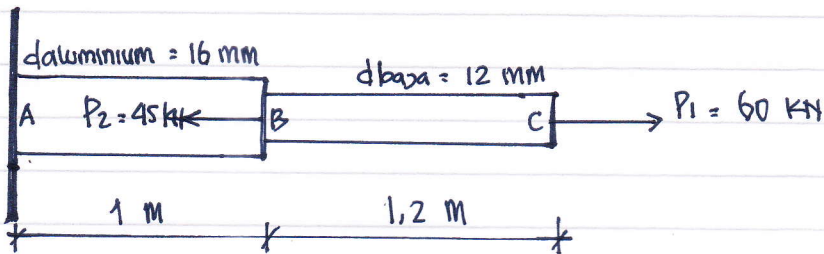 daluminium = 16 mm
dbaja = 12 mm
A
P2 = 45 kN
B
C
P1 = 60 KN
1 m
1,2 m